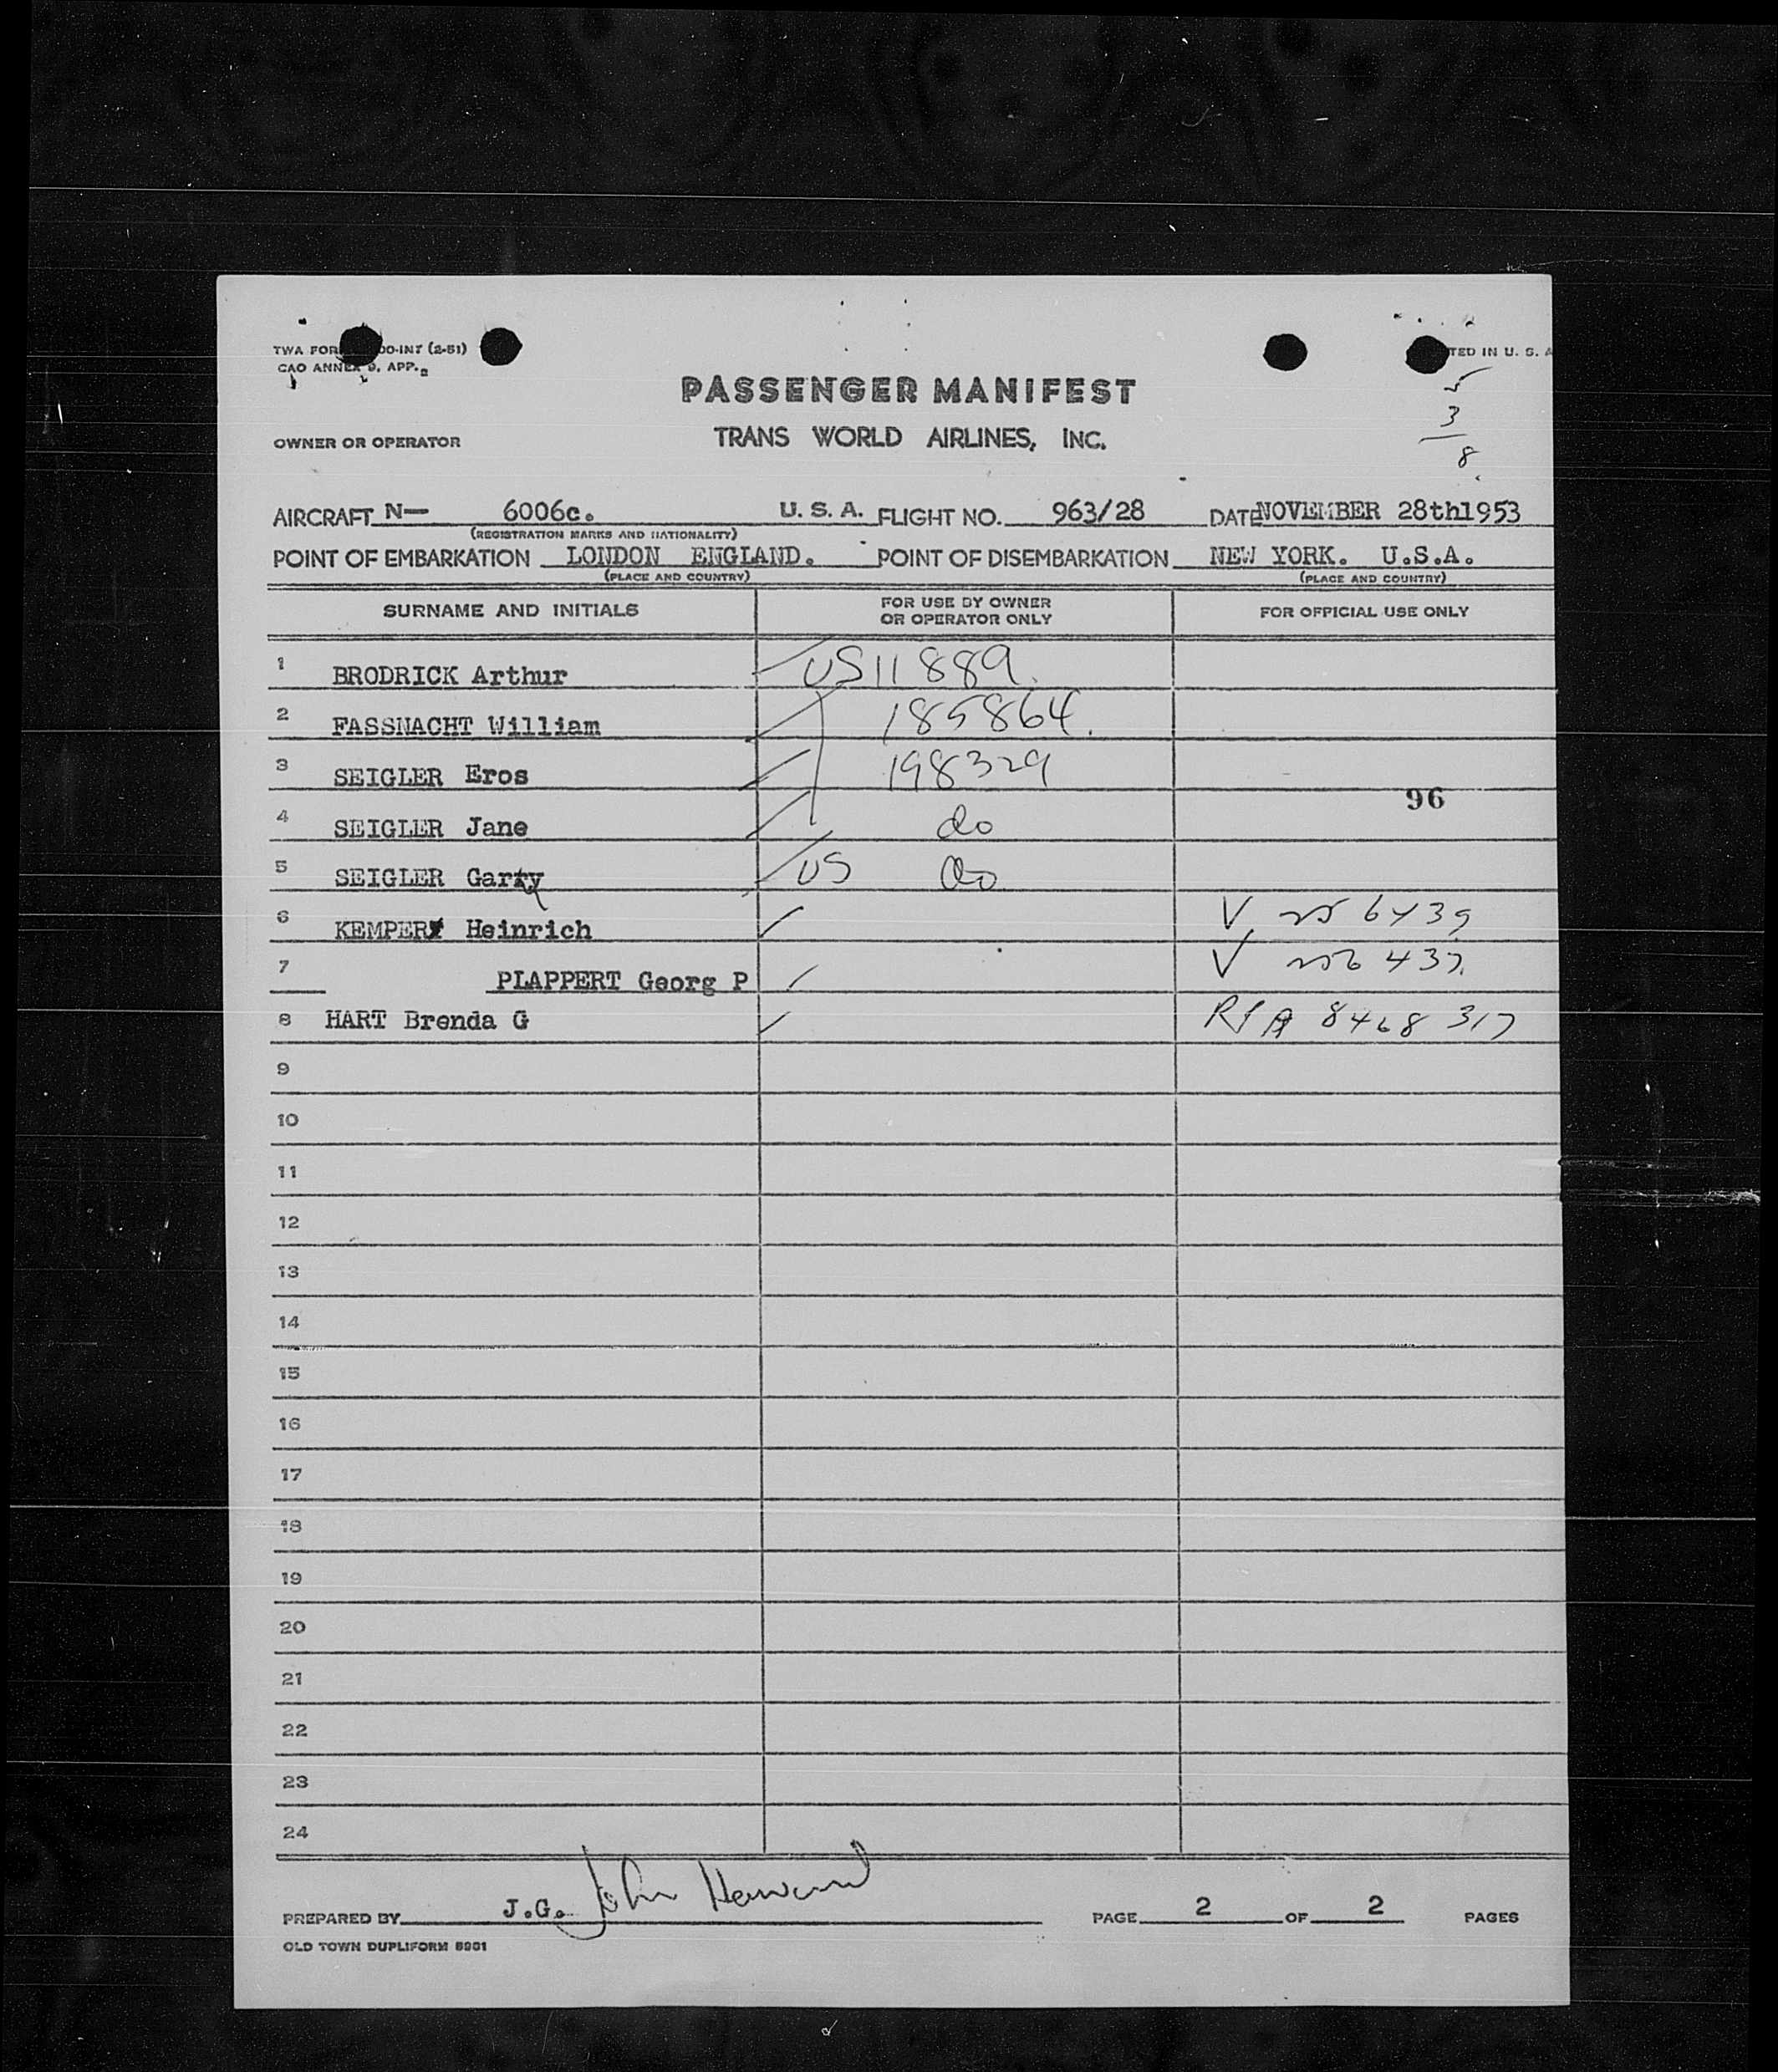 TWA FOR 00-INT (2-51)
CAO ANNEX 9, APP.
TED IN U. S. A
PASSENGER MANIFEST
5
3
8
OWNER OR OPERATOR TRANS WORLD AIRLINES, INC.
AIRCRAFT N— 6006c. U. S. A. FLIGHT NO. 963/28 DATE NOVEMBER 28th1953
(REGISTRATION MARKS AND NATIONALITY)
POINT OF EMBARKATION LONDON ENGLAND. POINT OF DISEMBARKATION NEW YORK. U.S.A.
(PLACE AND COUNTRY) (PLACE AND COUNTRY)
SURNAME AND INITIALS FOR USE BY OWNER OR OPERATOR ONLY FOR OFFICIAL USE ONLY
1 BRODRICK Arthur US 11889.
2 FASSNACHT William 185864.
3 SEIGLER Eros 198329
96
4 SEIGLER Jane do
5 SEIGLER Garry US do
6 KEMPER Heinrich V
7 PLAPPERT Georg P V
8 HART Brenda G A 8468 317
9
10
11
12
13
14
15
16
17
18
19
20
21
22
23
24
PREPARED BY J.G. John PAGE 2 OF 2 PAGES
OLD TOWN DUPLIFORM 8981